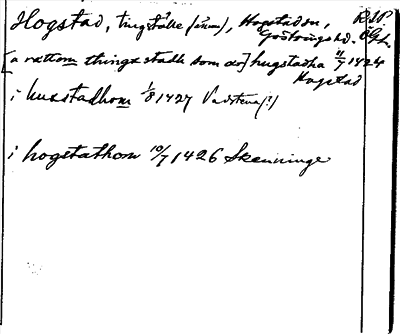 Hogstad, tingställe (även), Hogstads sn,
Göstrings hd. Ögl.
[a rættom thingx stadh som ær] hugstadha 11/7 1424
Hogstad
i huxstadhom 1/8 1427 Vadstena (?)
i hogstathom 10/7 1426 Skänninge